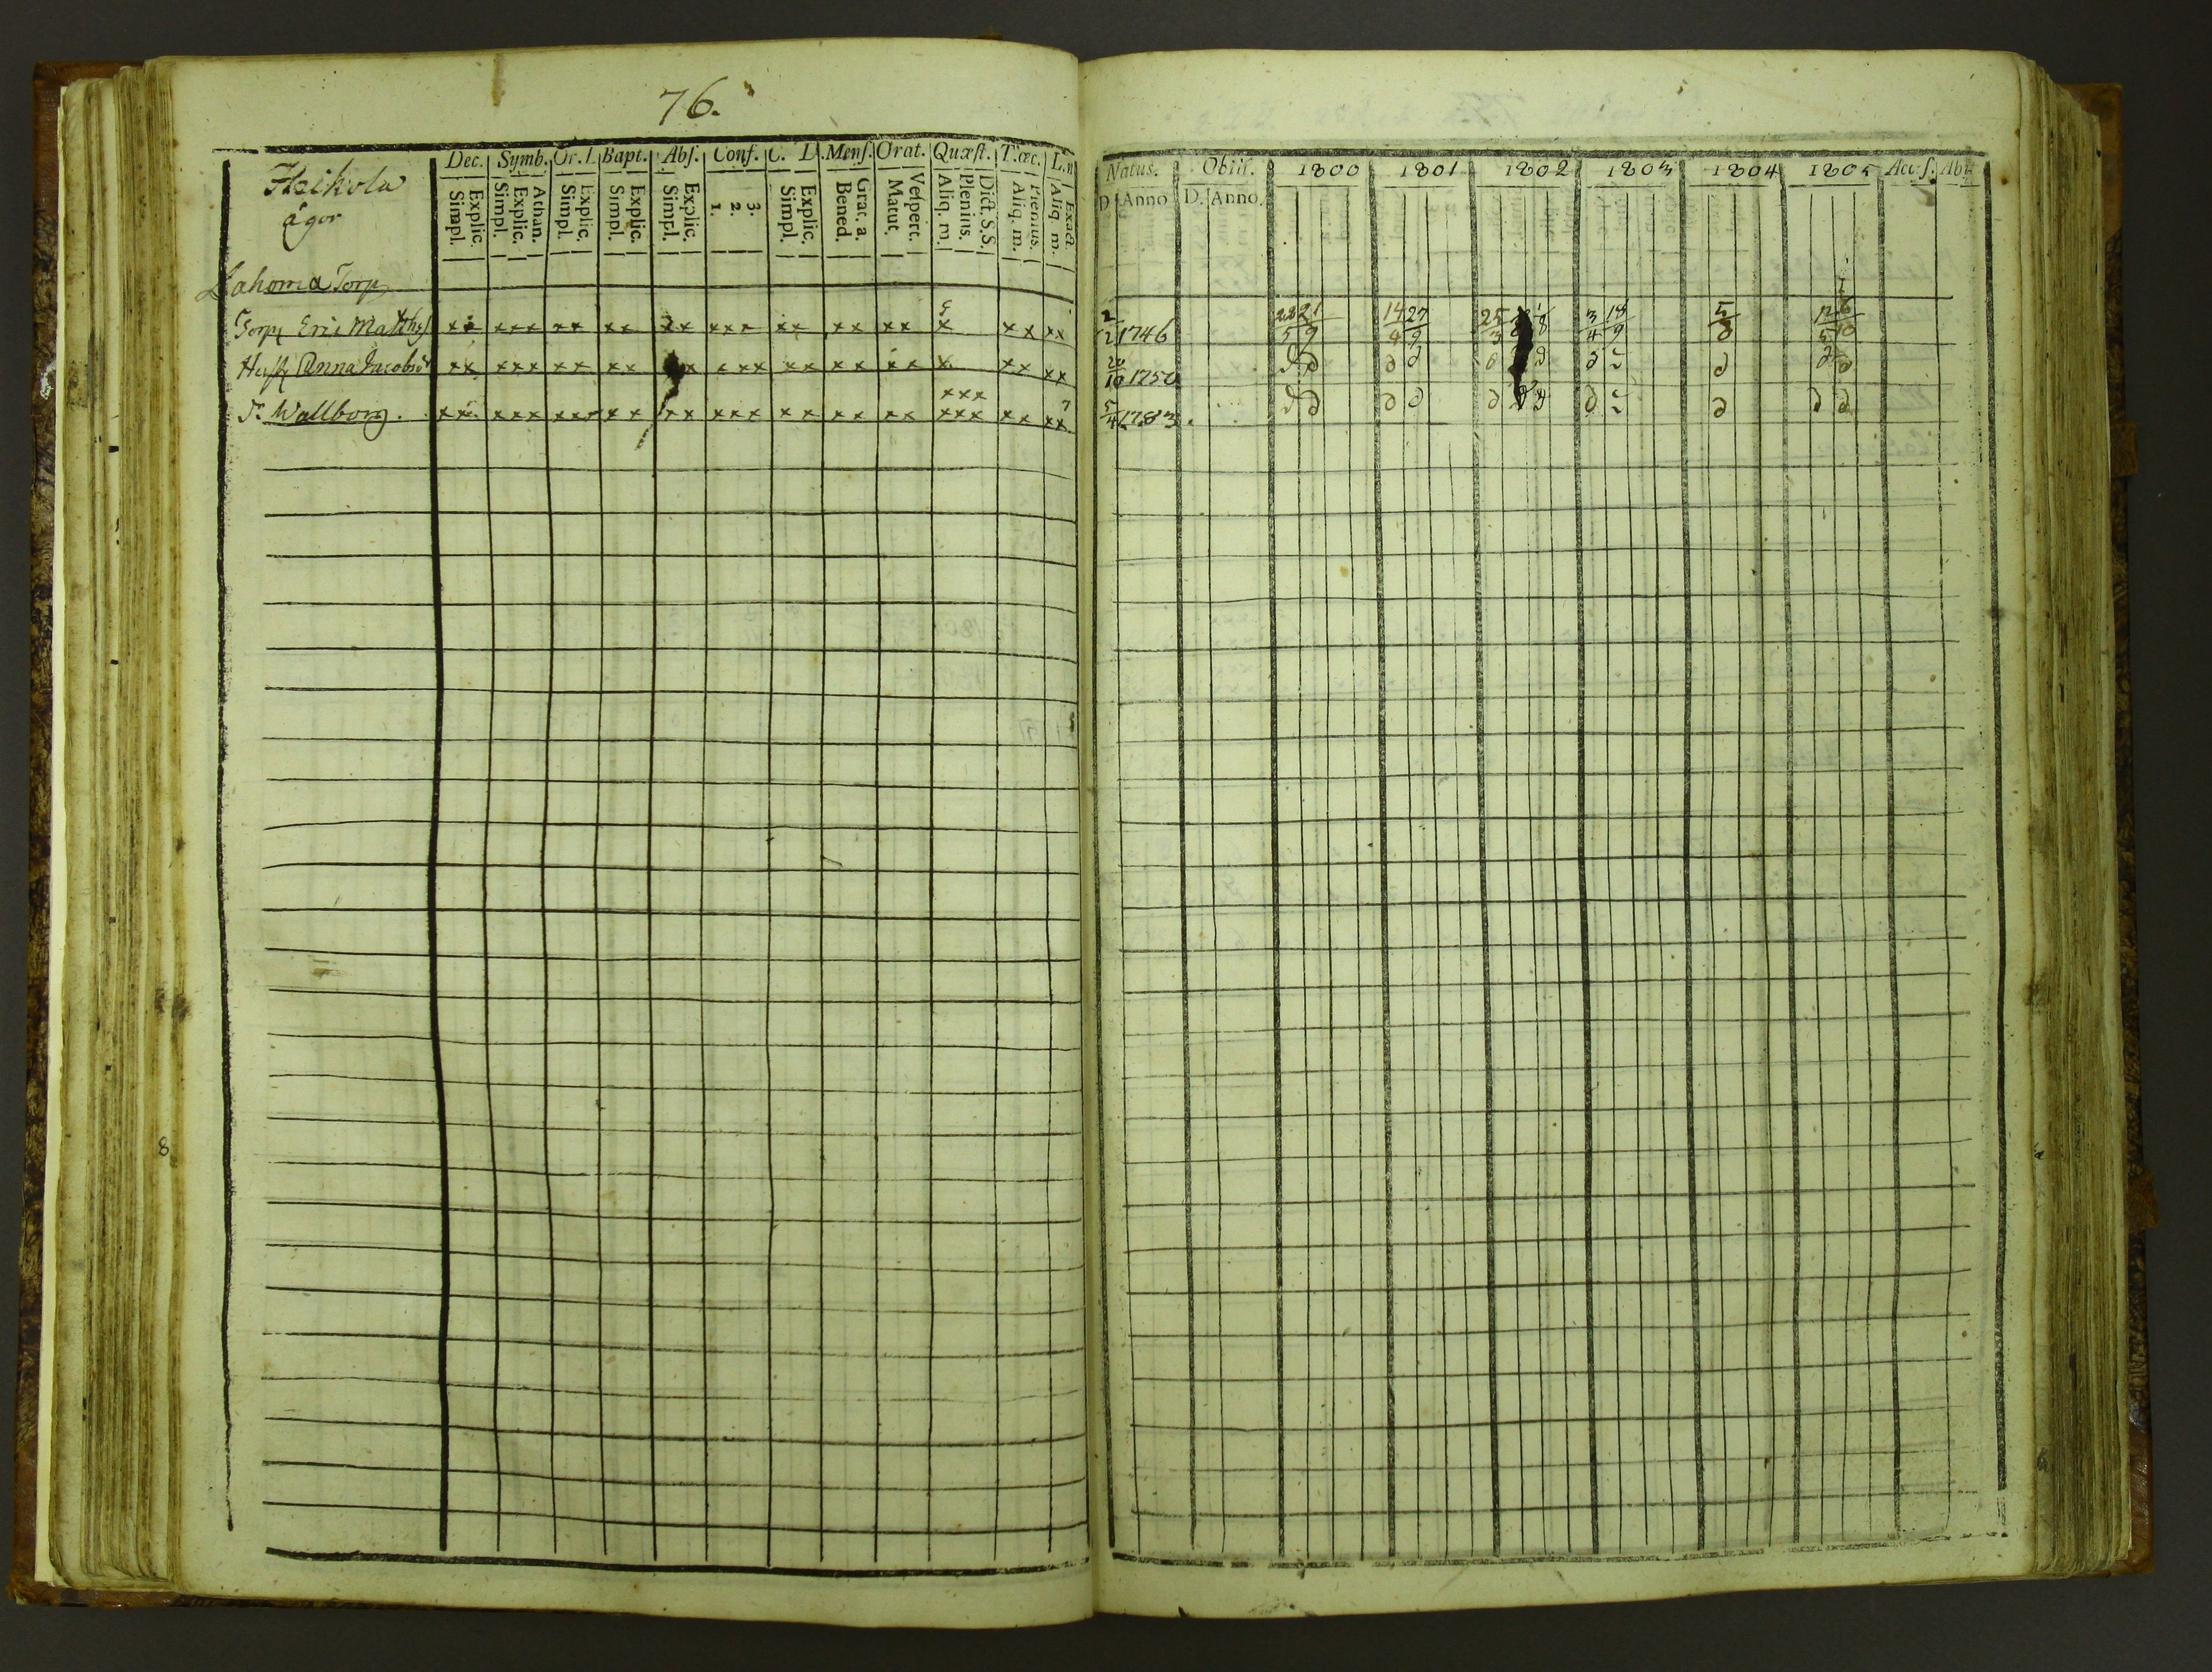 76.
Dec. Symb. Or. Bapt. Abſ. Conf. C. D. Menſ. Orat. Quæſt. T. œc. L. n
Heikola
ägor
Explic. Simpl. Athan. Explic. Simpl. Explic. Simpl. Explic. Simpl. Explic. Simpl. 3. 2. 1. Explic. Simpl. Grat. a. Bened. Veſpert. Matut. Dict. S.S. Plenius. Aliq. m. Plenius. Aliq. m. Exact. Aliq. m.
Lahoma Torp
Torp Eric Matthſ xx xxx xx xx xx xxx xx xx xx x xx xx
Huſt Anna Jacobsd xx xxx xx xx x xxx xx xx xx x xx xx
D. Wallborg. xx xxx xxx xx xx xxx xx xx xx xxx xxx xx xx
Natus. Obiit. 1800 1801 1802 1803 1804 1805 Acc.ſ. Abi
D. Anno D. Anno.
2/2 1746 22/5 21/9 14/4 27/9 25/3 3/4 18/9 5/8 12/5 6/10
20/10 1750 d d d d d d d d d d
5/4 1783. d d d d d d d d d d
8